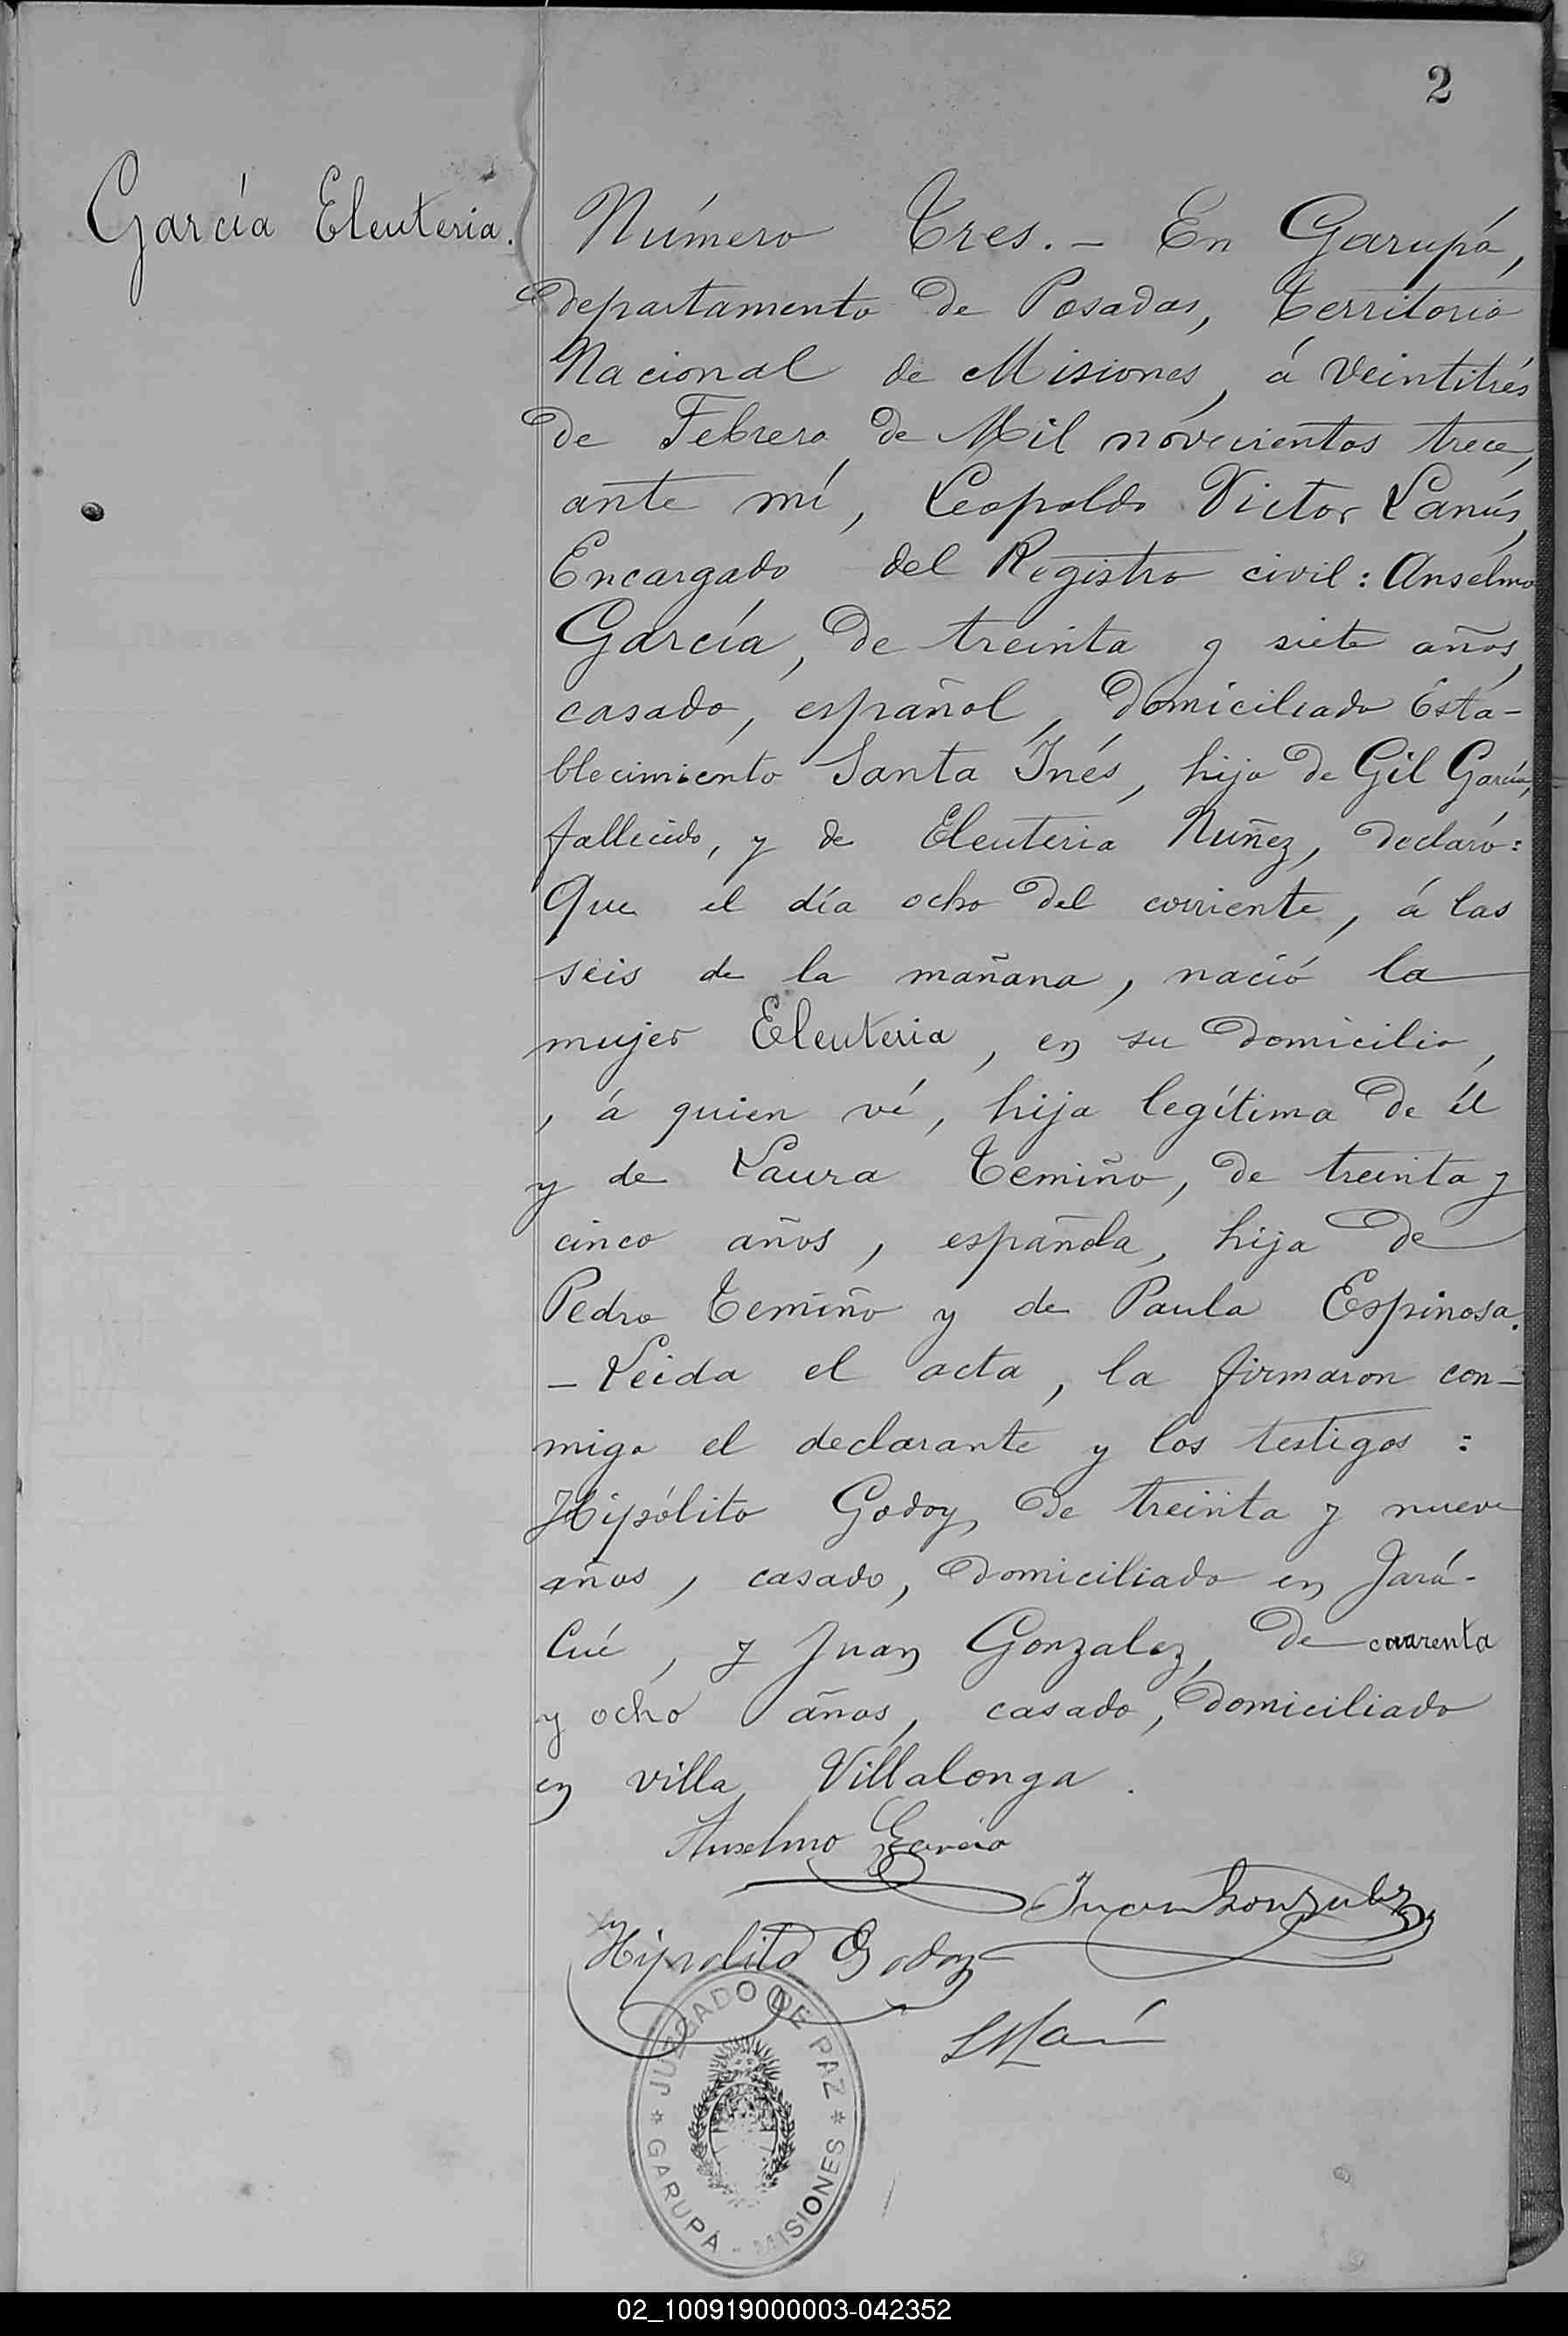 2
García Eleuteria.
Número Tres. - En Garupá,
departamento de Posadas, Territorio
Nacional de Misiones, á veintitrés
de Febrero de Mil novecientos trece,
ante mí, Leopoldo Victor Lanús,
Encargado del Registro civil: Anselmo
García, de treinta y siete años,
casado, español, domiciliado Esta-
blecimiento Santa Inés, hijo de Gil García,
fallecido, y de Eleuteria Nuñez, declaró:
Que el día ocho del corriente, á las
seis de la mañana, nació la
mujer Eleuteria, en su domicilio,
, á quien vé, hija legítima de él
y de Laura Temiño, de treinta y
cinco años, española, hija de
Pedro Temiño y de Paula Espinosa.
- Leida el acta, la firmaron con-
migo el declarante y los testigos:
Hipólito Godoy, de treinta y nueve
años, casado, domiciliado en Jará-
Cué, y Juan Gonzalez, de cuarenta
y ocho años, casado, domiciliado
en villa Villalonga.
Anselmo García
Juan Gonzalez
Hipolito Godoy
JUZGADO DE PAZ
* GARUPÁ - MISIONES *
02_100919000003-042352